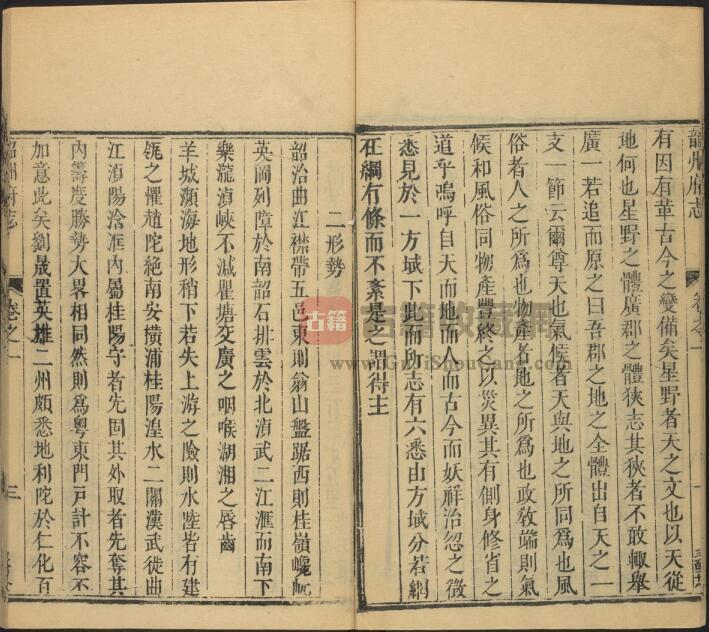 韶州府志
卷之一
有因有革古今之變備矣星野者天之文也以天從
地何也星野之體廣郡之體狹志其狹者不敢輙舉
廣一若追而原之曰吾郡之地之全體出自天之一
支一節云爾尊天也氣候者天與地之所同為也風
俗者人之所為也物產者地之所為也政敎端則氣
候和風俗同物產豐終之以災異其有側身修省之
道乎嗚呼自天而地而人而古今而妖祥治忽之徵
悉見於一方域下此而所志有六悉由方域分若網
在綱有條而不紊是之謂得主
二形勢
韶治曲江襟帶五邑東則翁山盤踞西則桂嶺巉岏
英岡列障於南韶石排雲於北湞武二江滙而南下
樂瀧湞峽不減瞿塘交廣之咽喉湖湘之唇齒
羊城瀕海地形稍下若失上游之險則水陸皆有建
瓴之懼趙陀絕南安橫浦桂陽湟水二關漢武從曲
江湞陽浛洭內屬桂陽守者先固其外取者先奪其
內籌度勝勢大畧相同然則為粤東門戶計不容不
加意此矣劉晟置英雄二州頗悉地利陀於仁化百
韶州府志
卷之一
三
古籍
古籍收藏网
www.GuJiShouCang.com